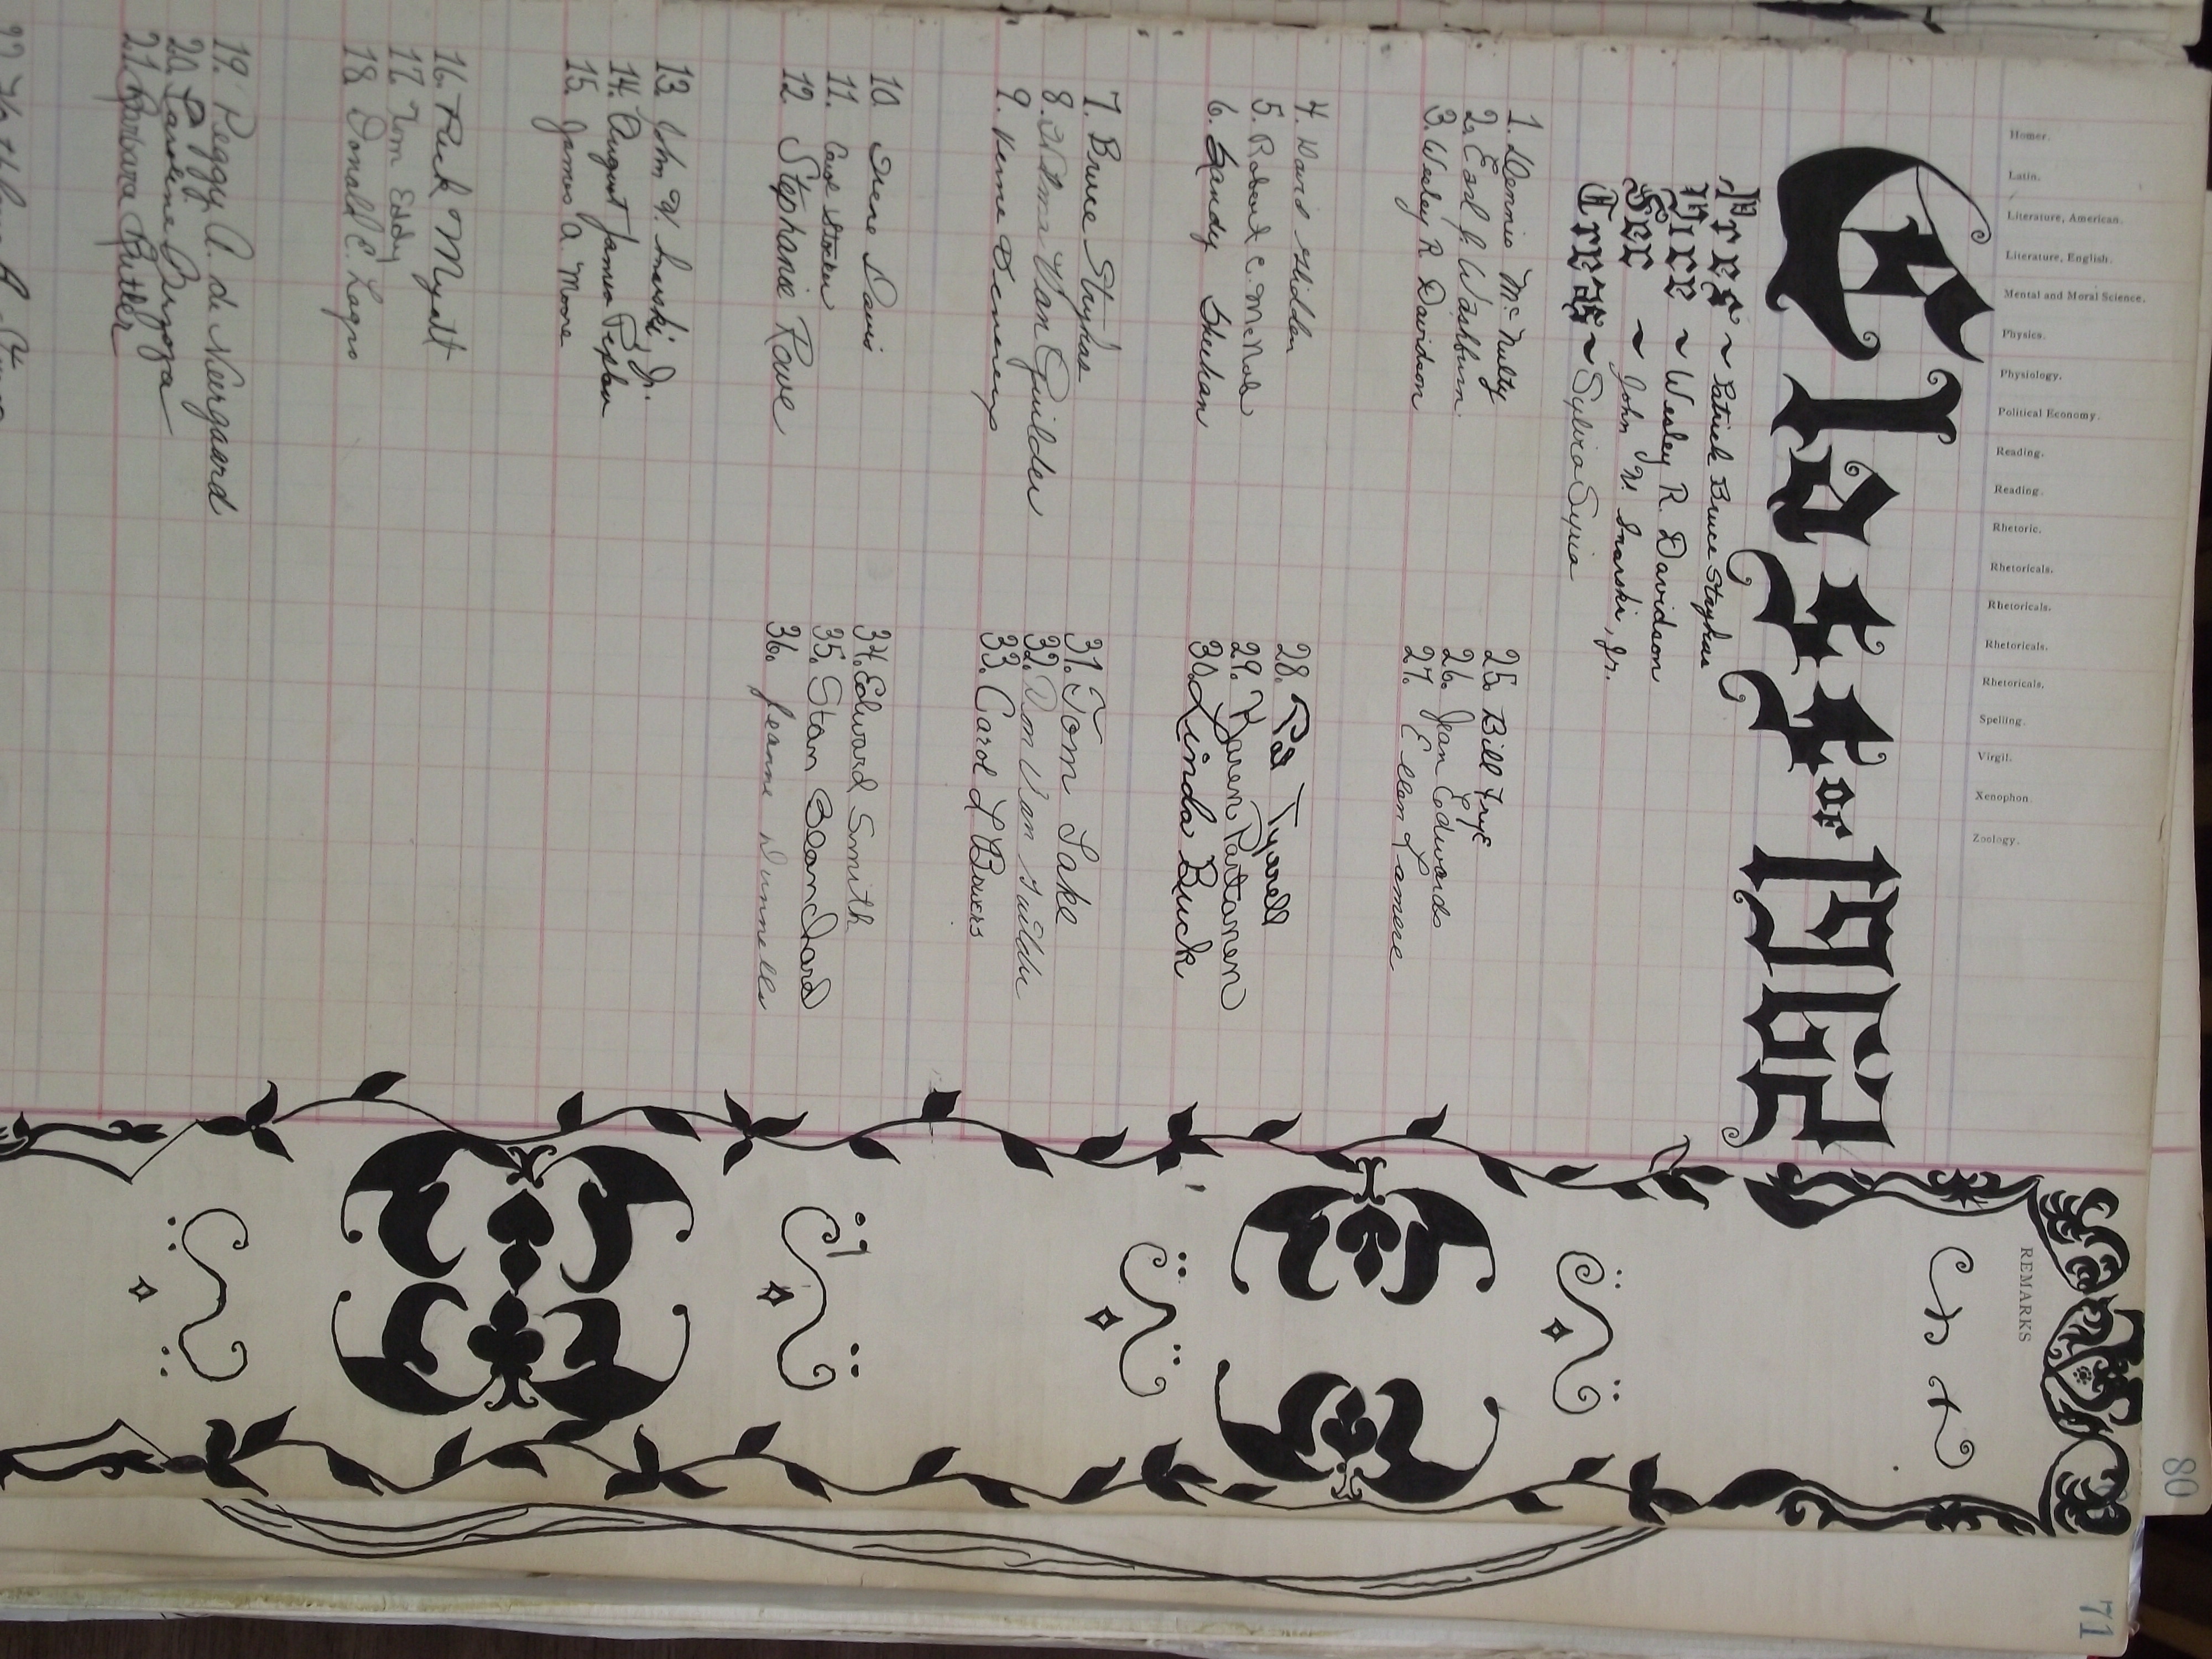 80
71
Homer.
Latin.
Literature, American.
Literature, English.
Mental and Moral Science.
Physics.
Physiology.
Political Economy.
Reading.
Reading.
Rhetoric.
Rhetoricals.
Rhetoricals.
Rhetoricals.
Rhetoricals.
Spelling.
Virgil.
Xenophon.
Zoology.
REMARKS
Class of 1962
Pres ~ Patrick Bruce Strykas
Vice ~ Wesley R. Davidson
Sec ~ John W. Snarski, Jr.
Treas ~ Sylvia Syria
1. Dennis McNulty
2. Earl J. Washburn.
3. Wesley R Davidson
4. Doris Glidden
5. Robert C. McNab
6. Sandy Sheehan
7. Bruce Strykas
8. Wilma Van Guilder
9. Verne
10. Irene Davis
11. Carl Stocken
12. Stephanie Rowe
13. John W. Snarski, Jr.
14. August James
15. James A Moore
16. Rick Myatt
17. Tom Eddy
18. Donald E. Lagro
19. Peggy A. de Neergaard
20.
21. Barbara Butler
22.
25. Bill Frye
26. Jean Edwards
27. Ellen Lamere
28. Pat Tyrell
29. Karen Partanen
30. Linda Buck
31. Tom Lake
32. Ron Van Guilder
33. Carol L Bowers
34. Edward Smith
35. Stan Blanchard
36. Jeanne Dunnells